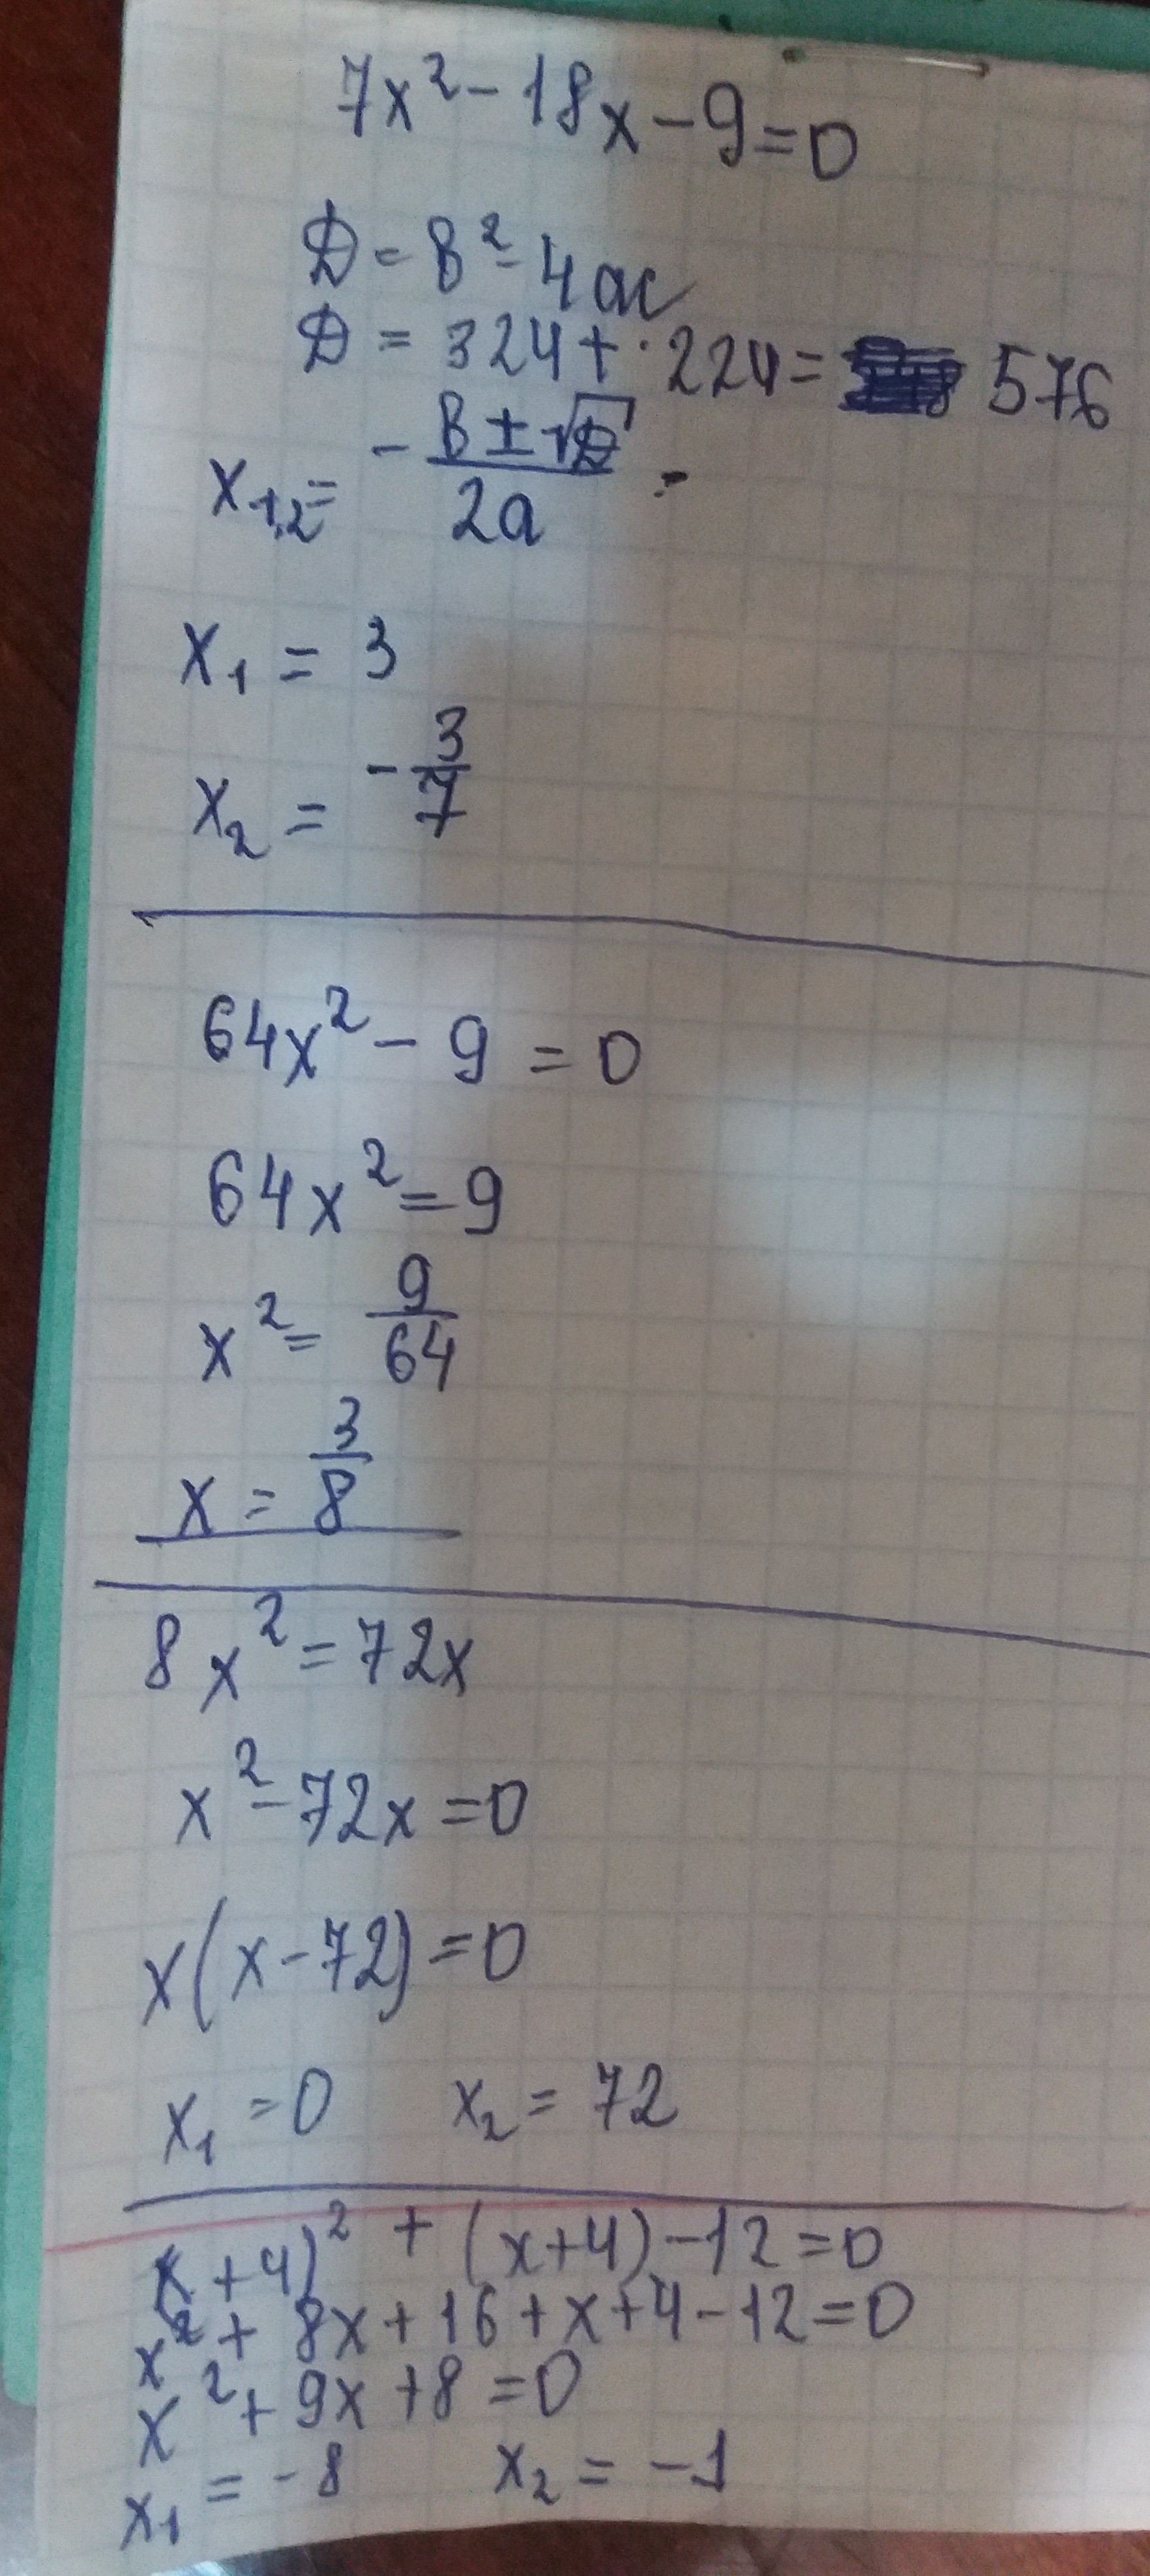 7x² - 18x - 9 = 0
D = в² - 4ac
D = 324 + · 224 = 576
x₁,₂ = - в ± √D / 2a
x₁ = 3
x₂ = - 3/7
64x² - 9 = 0
64x² = 9
x² = 9/64
x = 3/8
8x² = 72x
x² - 72x = 0
x(x - 72) = 0
x₁ = 0 x₂ = 72
(x + 4)² + (x + 4) - 12 = 0
x² + 8x + 16 + x + 4 - 12 = 0
x² + 9x + 8 = 0
x₁ = -8 x₂ = -1